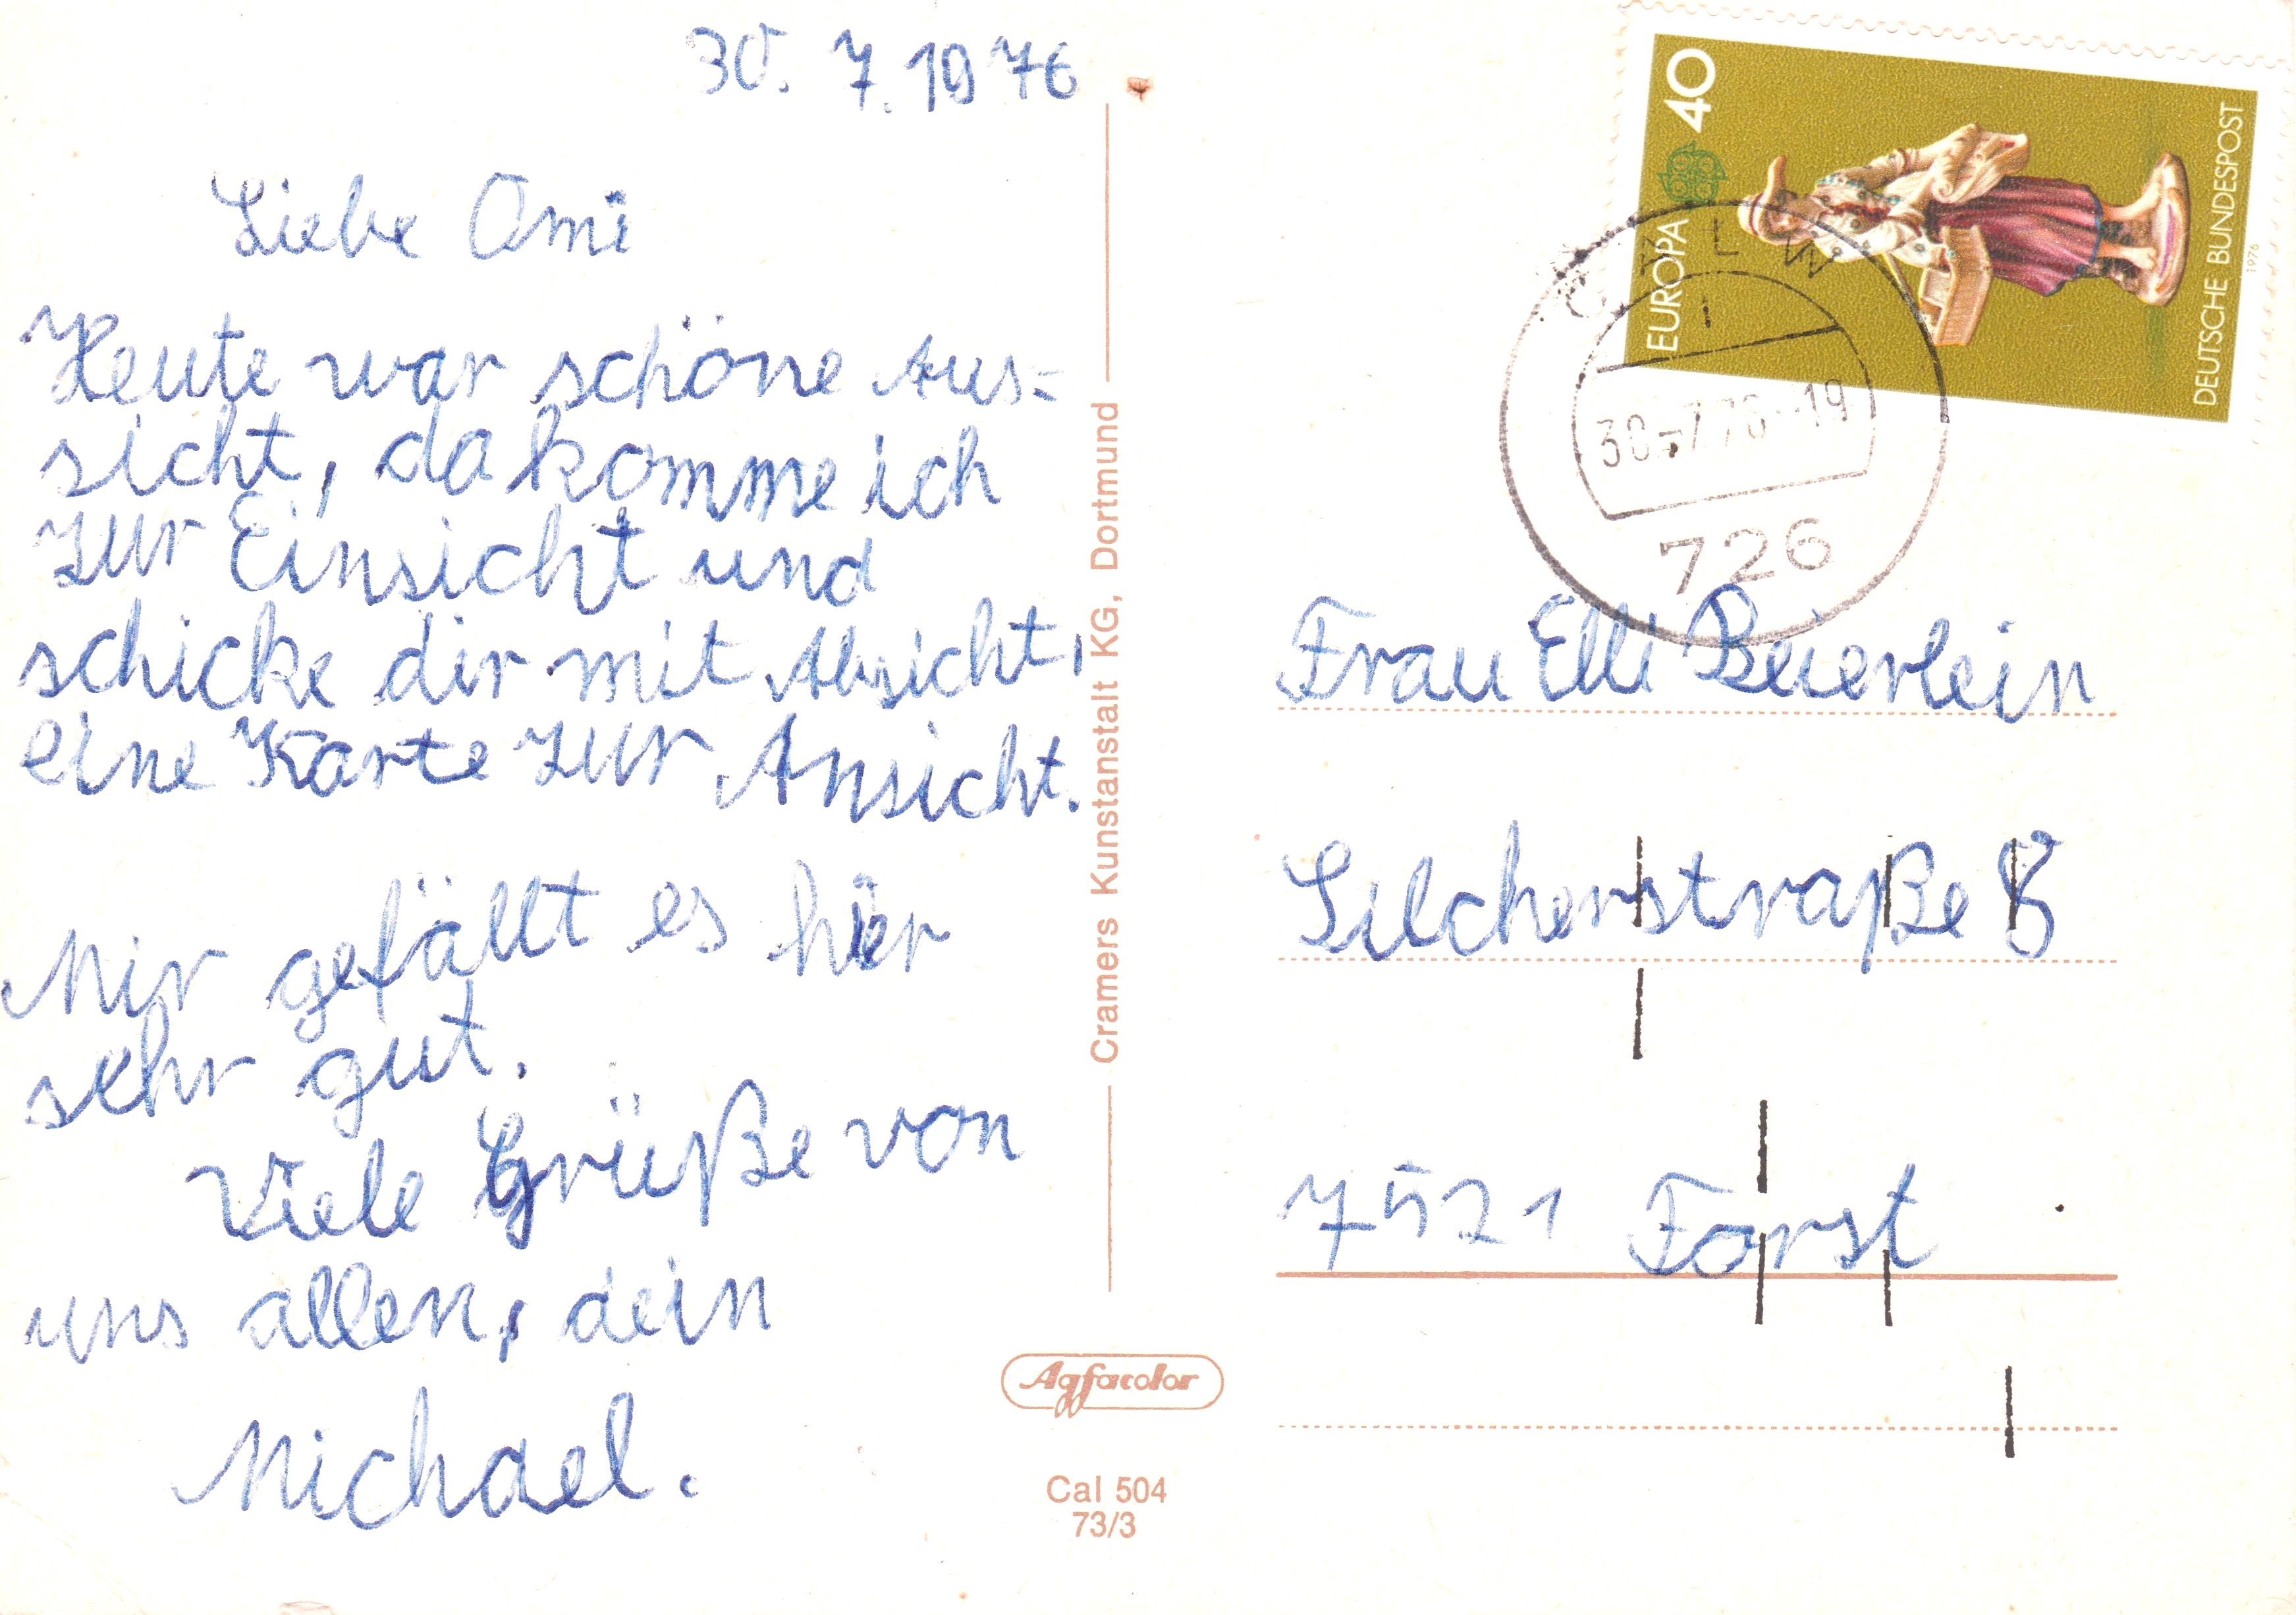 30. 7. 1976
Liebe Omi
Heute war schöne Aus=
sicht, da komme ich
zur Einsicht und
schicke dir mit Absicht,
eine Karte zur Ansicht.
Mir gefällt es hier
sehr gut.
Viele Grüße von
uns allen, dein
Michael.
Cramers Kunstanstalt KG, Dortmund
Agfacolor
Cal 504
73/3
EUROPA 40
DEUTSCHE BUNDESPOST
1976
CALW
1
30.-7.76--19
726
Frau Elli Beierlein
Silcherstraße 8
7521 Forst